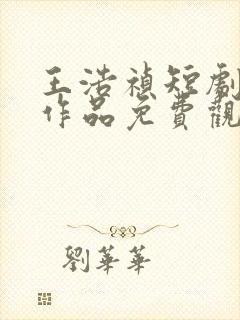 王浩禎短劇
作品免費觀
劉華華